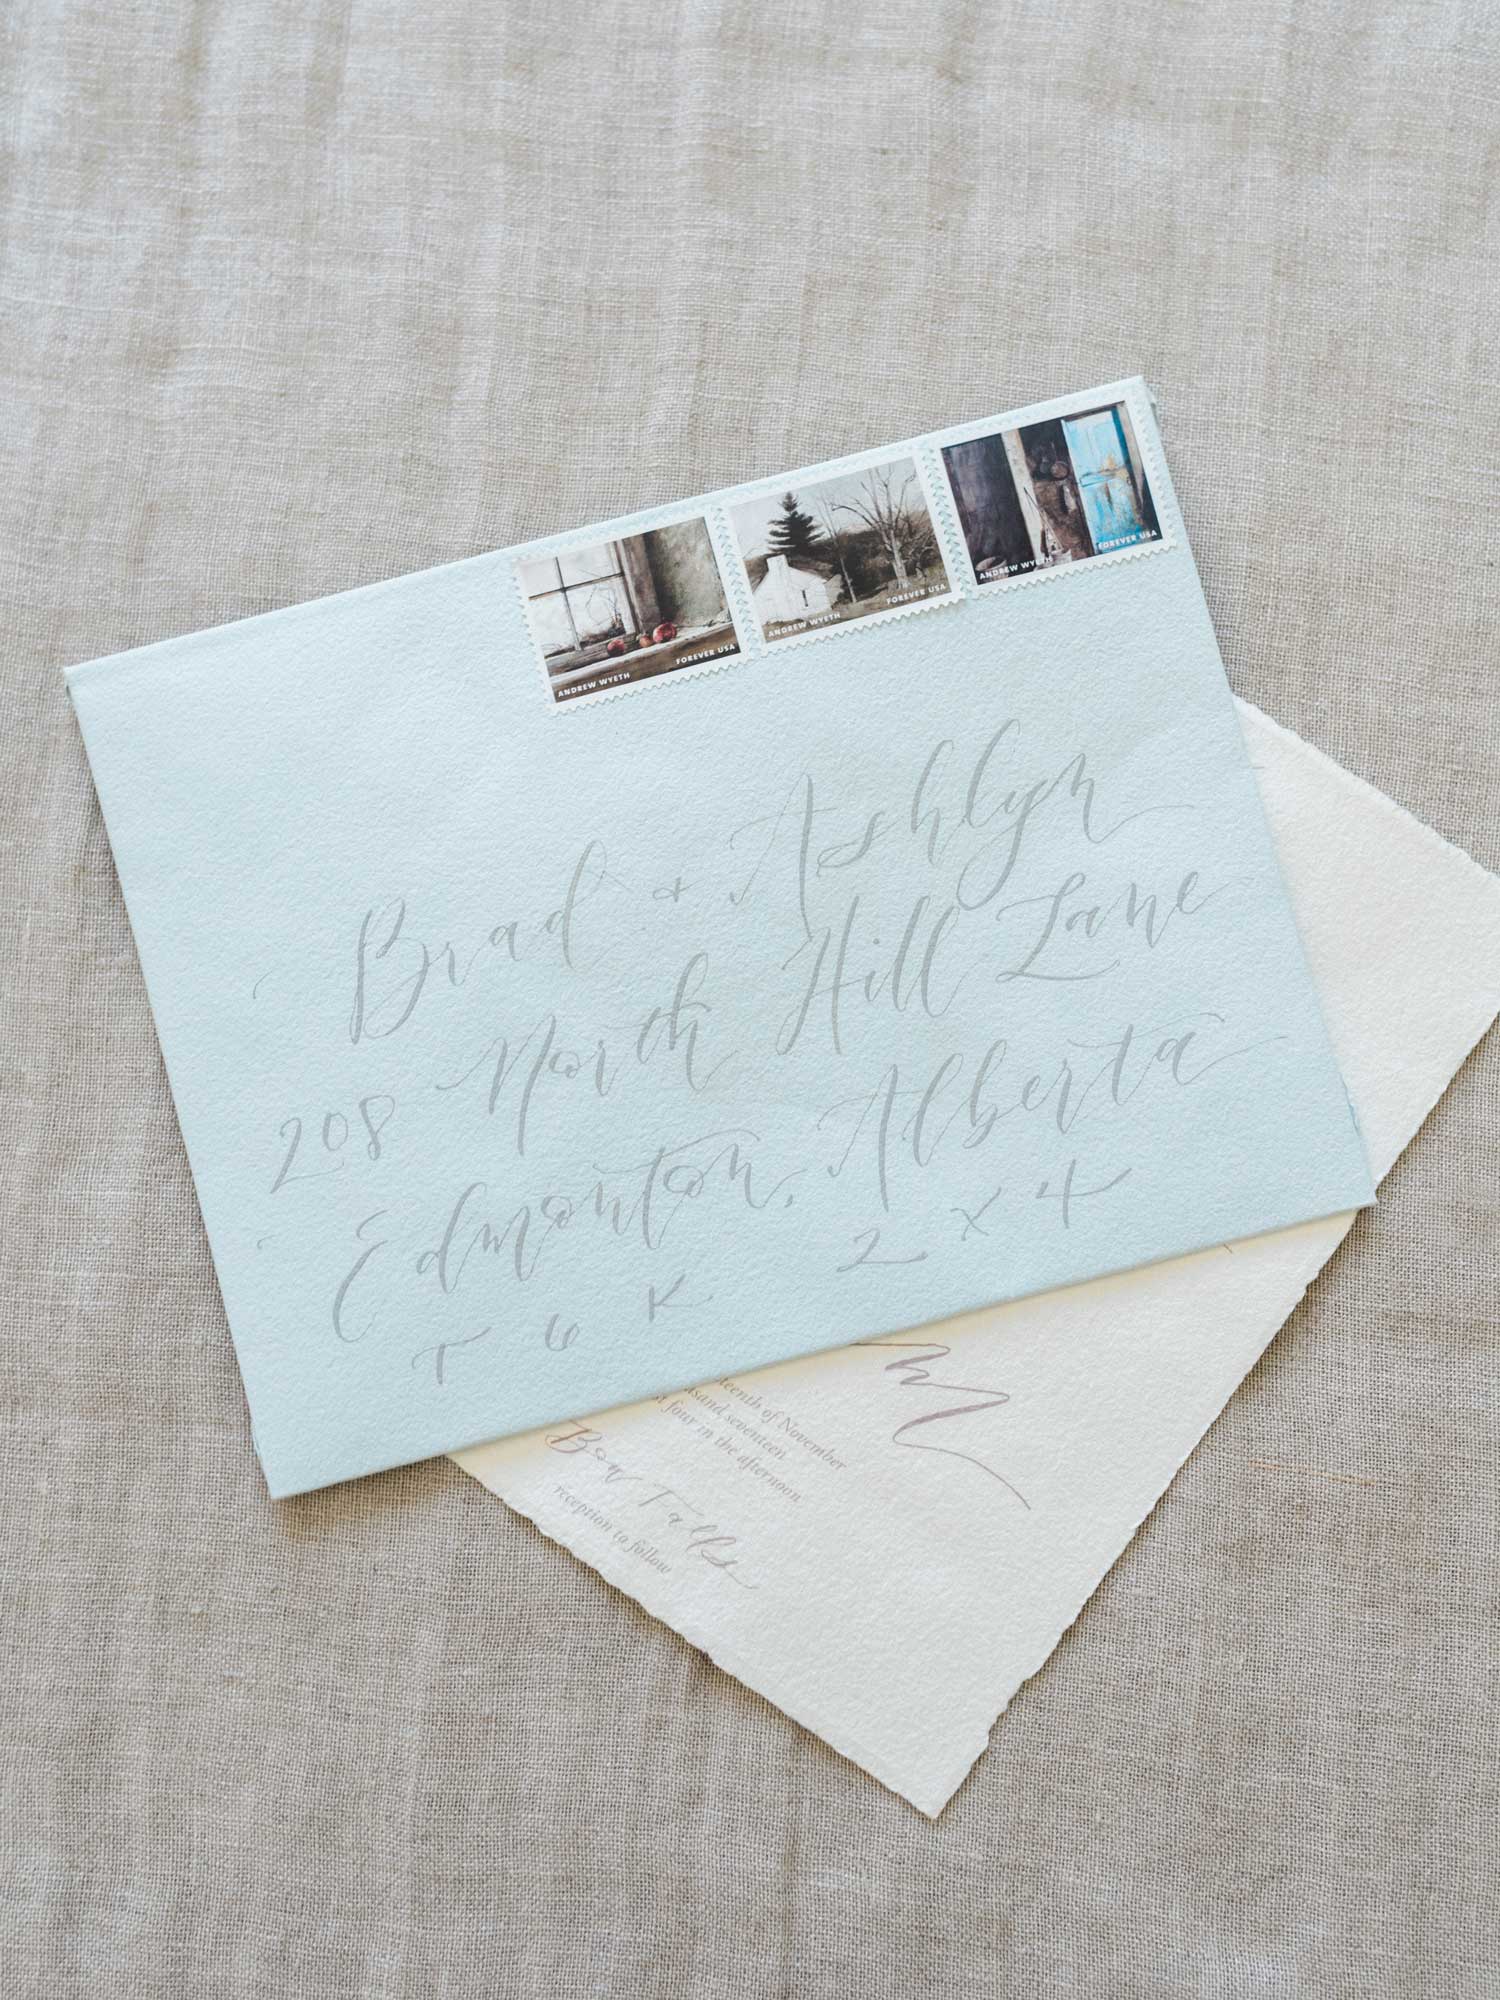 ANDREW WYETH FOREVER USA
ANDREW WYETH FOREVER USA
ANDREW WYETH FOREVER USA
Brad + Ashlyn
208 North Hill Lane
Edmonton, Alberta
T 6 K 2 X 4
of November
seventeen
four in the afternoon
Bow Falls
reception to follow